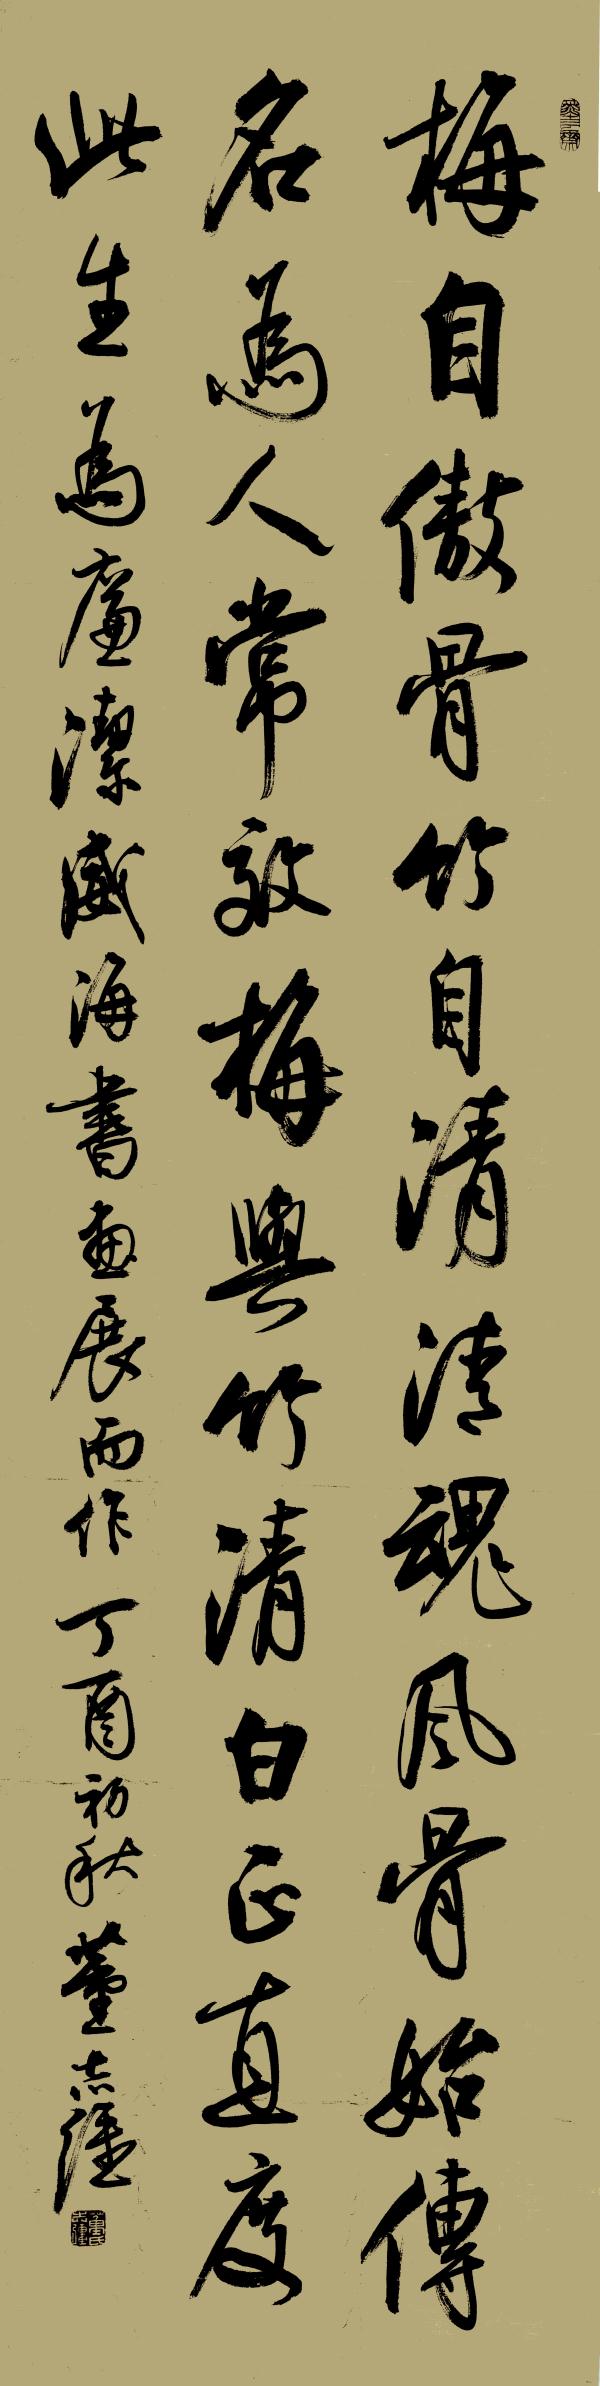 梅自傲骨竹自清清魂风骨始傳
名為人常敬梅與竹清白正直度
此生為廉潔威海書画展而作丁酉初秋董志强